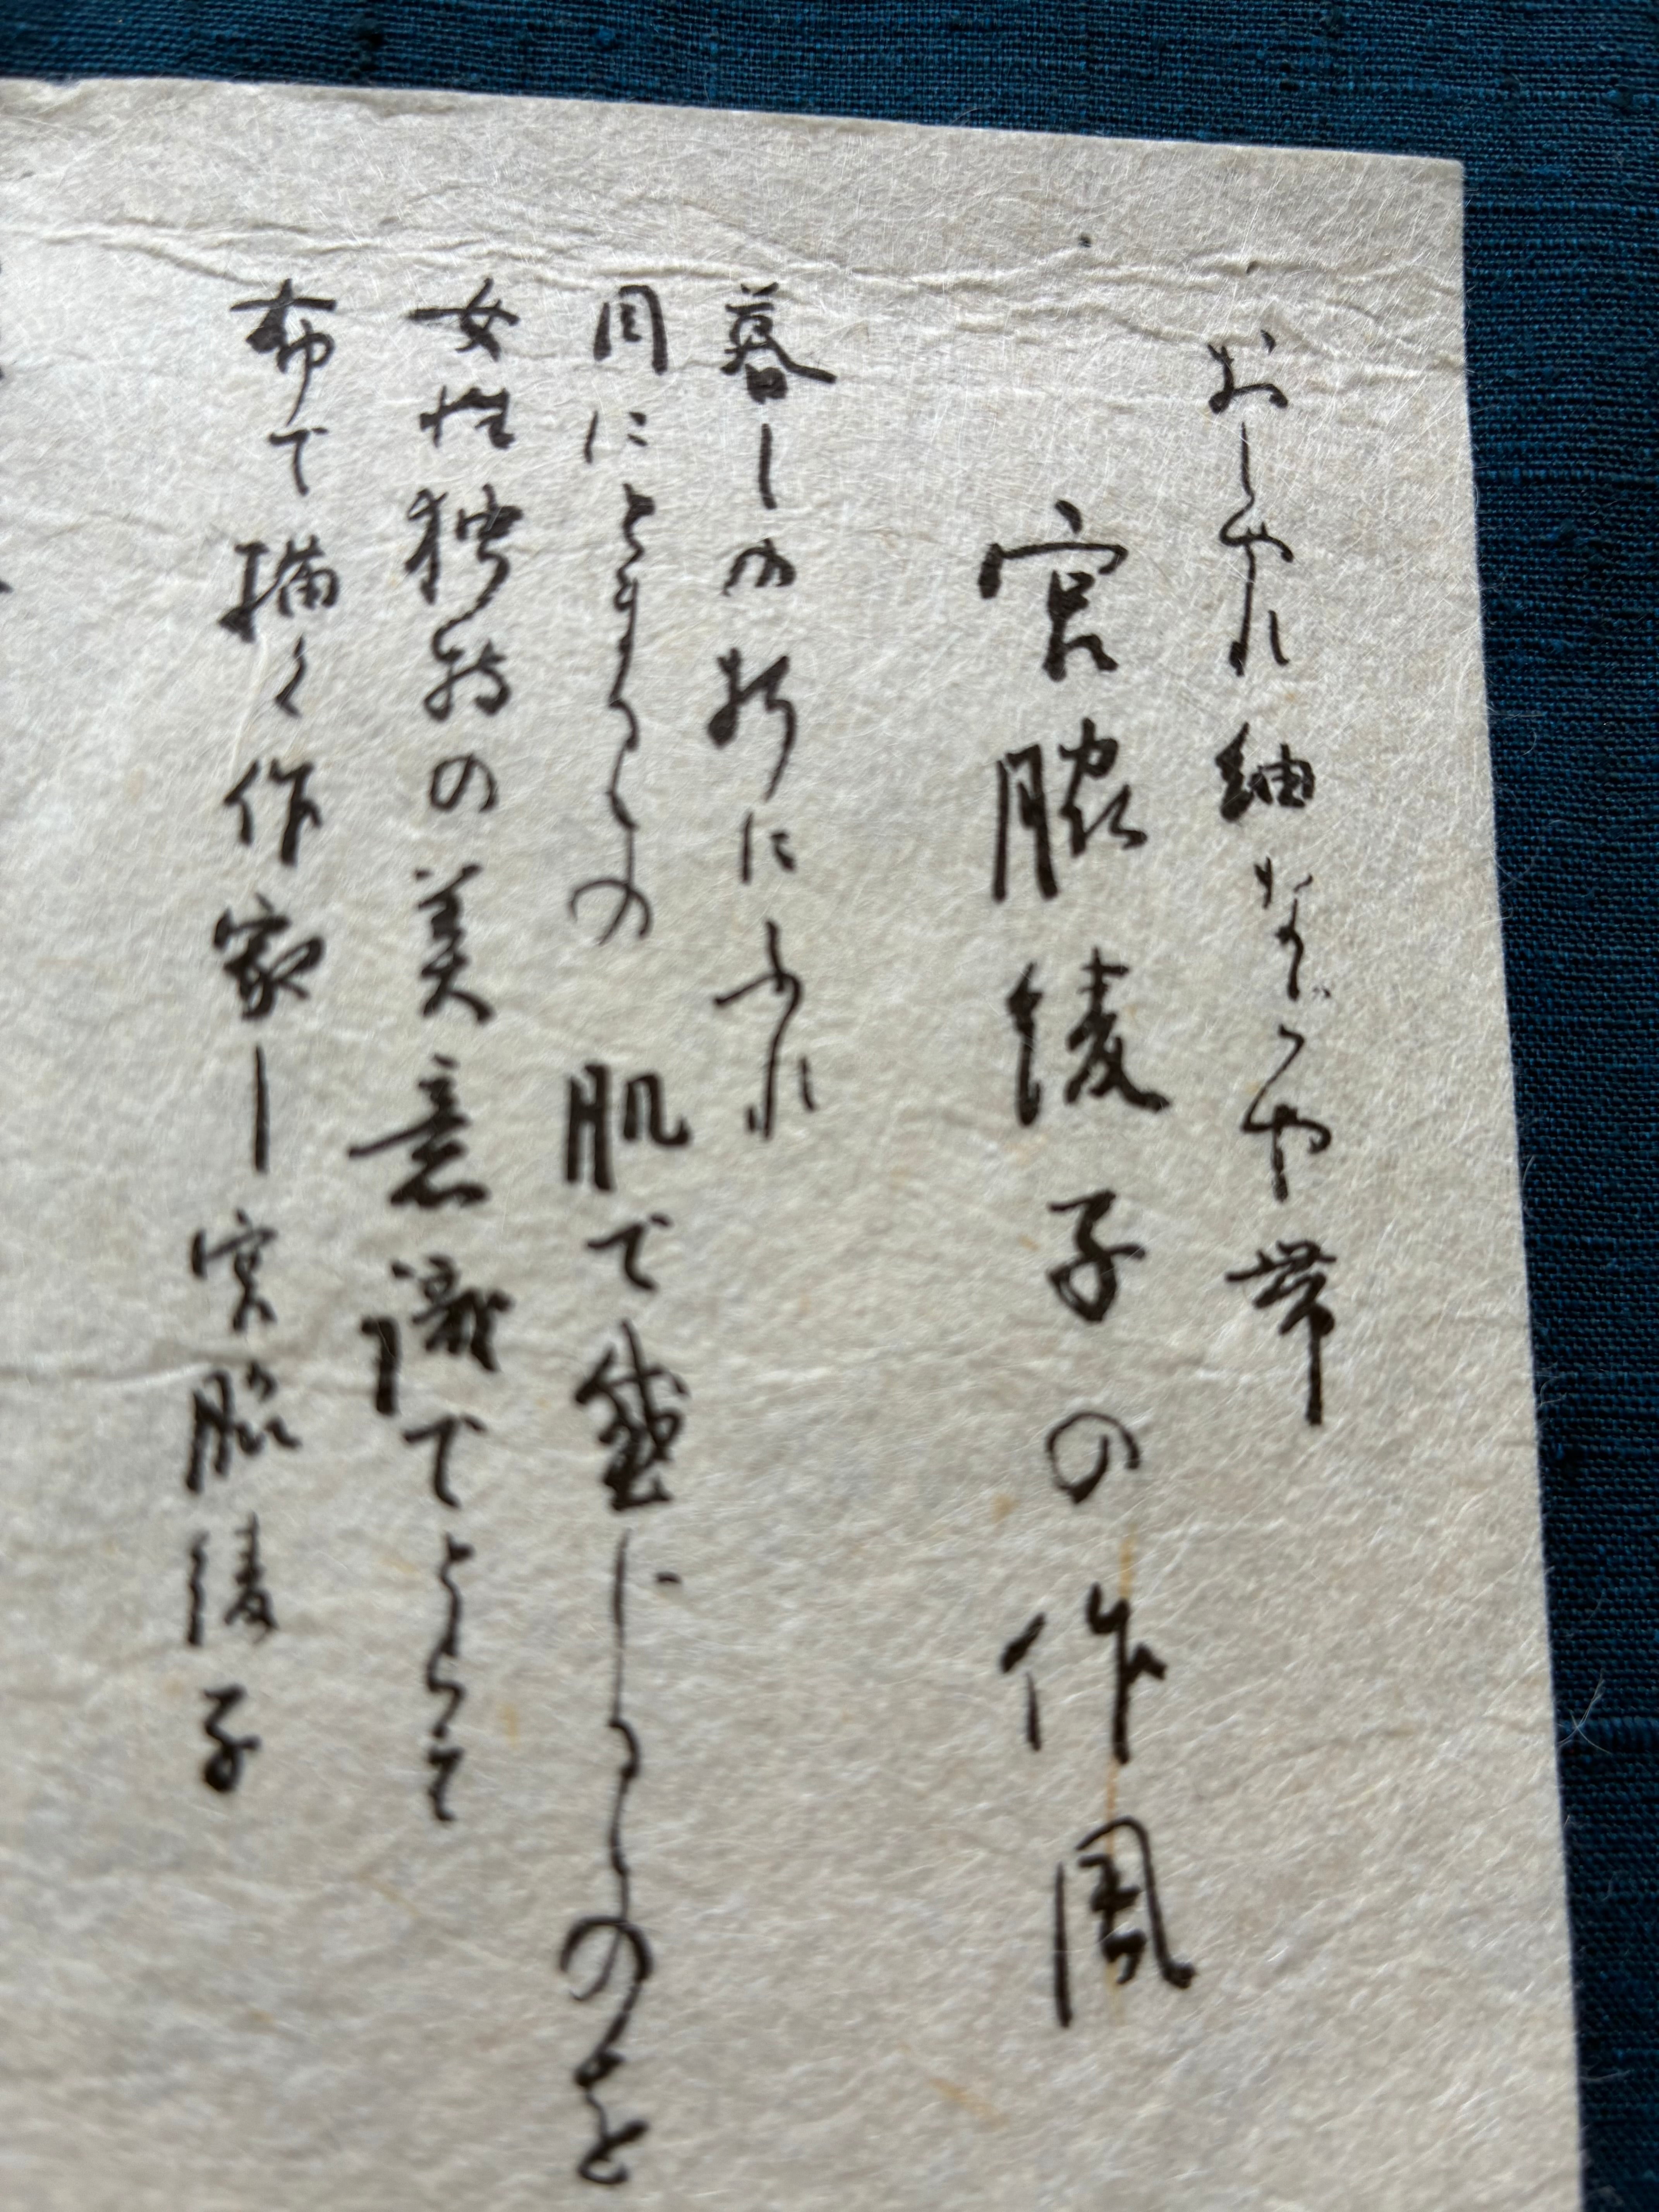 おしゃれ紬なごや帯
宮脇綾子の作風
暮しの折にふれ
目にとまるもの 肌で感じるものを
女性独特の美意識でとらえ
布で描く作家ー宮脇綾子